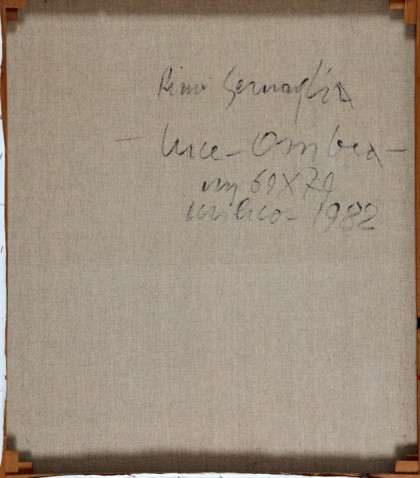 Rino Sernaglia
- Luce - Ombra -
cm 60 X 70
acrilico - 1982